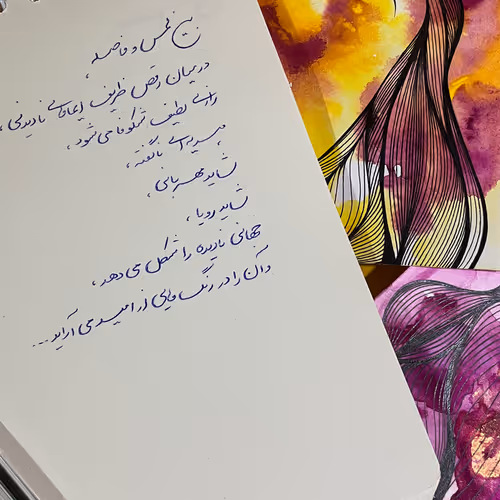 بین لمس و فاصله،
در میان رقص ظریف ایماهای نادیدنی،
رازی لطیف شکوفا می‌شود،
هدیه‌ای ناگفته،
شاید مهربانی،
شاید رویا،
جهانی نادیده را شکل می‌دهد،
و آن را در رنگ‌هایی از امید می‌آراید...